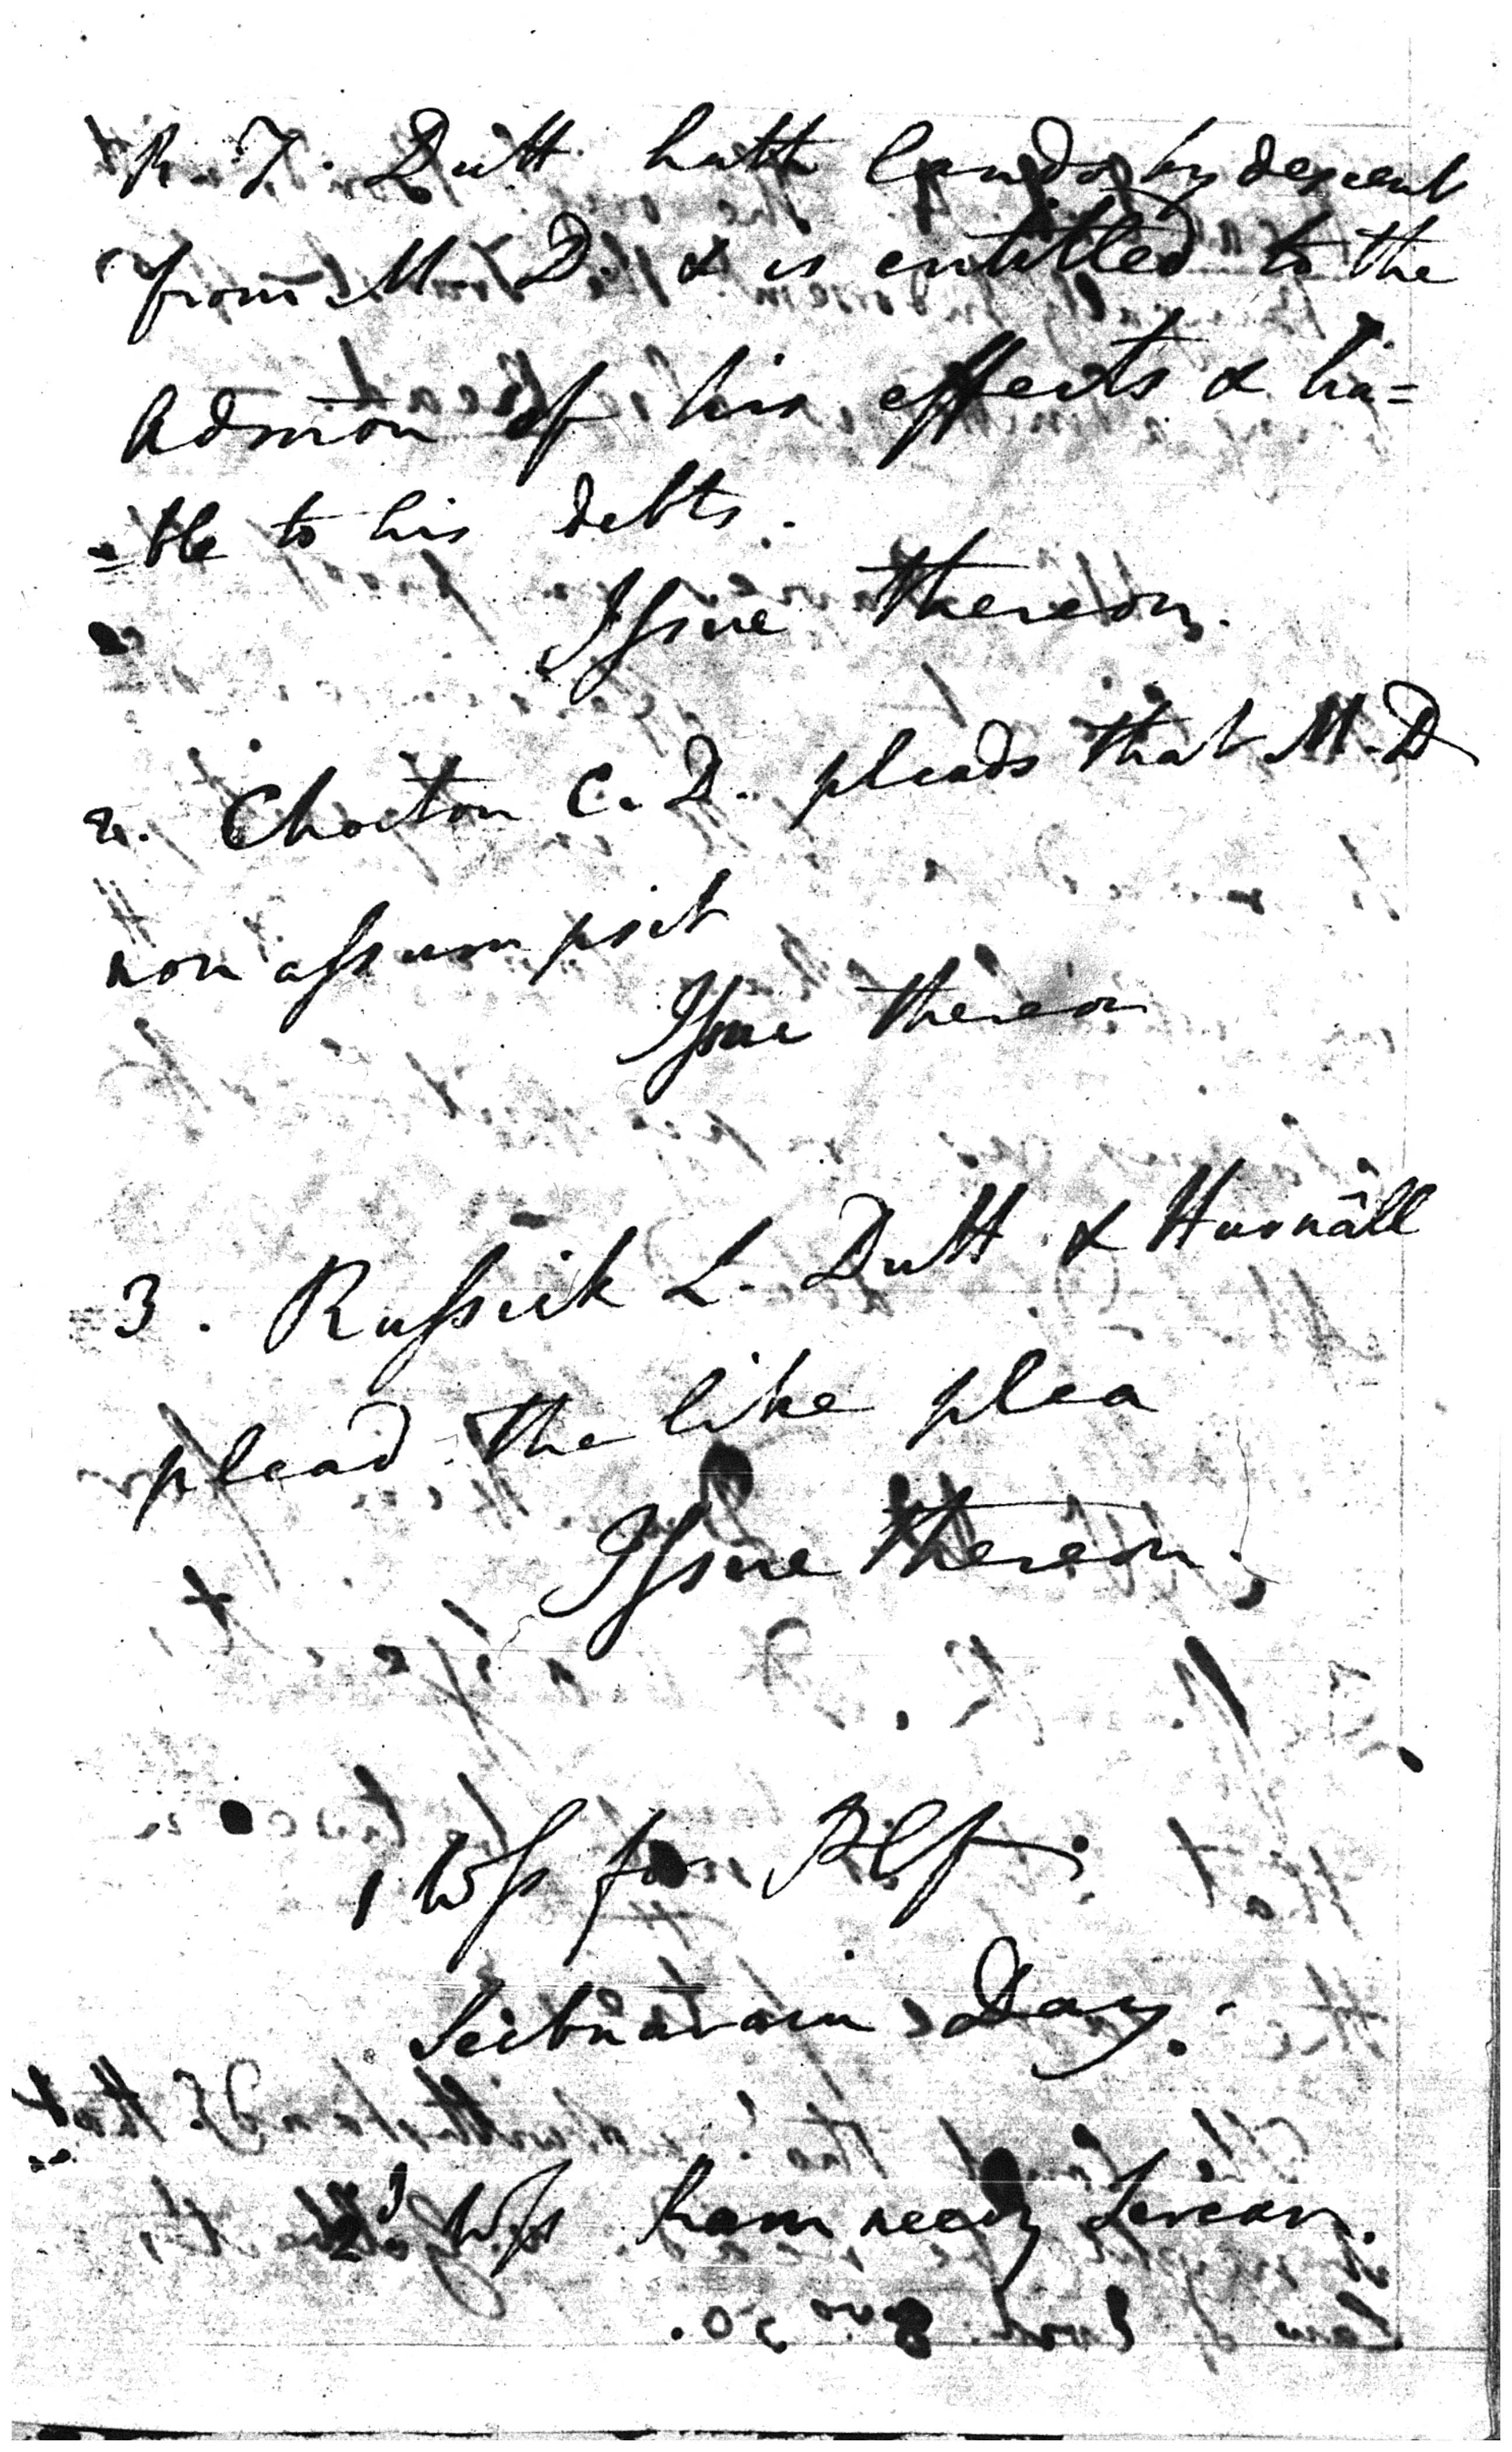 R. T. Dutt hath lands by descent
from M. D. & is entitled to the
Admōn of his effects & lia=
=ble to his debts.
Issue thereon.
2. Choiton C. D. pleads that M. D
non assumpsit
Issue thereon
3. Russick L. Dutt & Hurnâll
plead the like plea
Issue thereon.
1 Wss for Plf.
Seibnarain Day.
2d Wss Ram